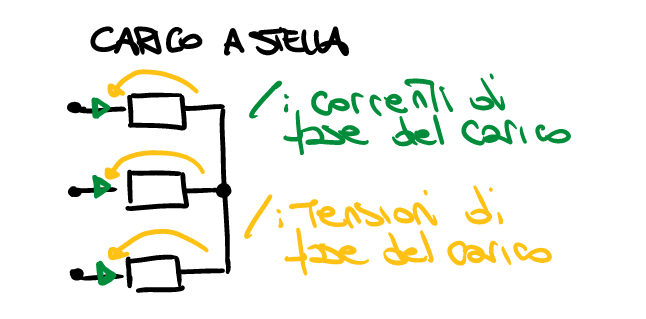 CARICO A STELLA
/: correnti di
fase del carico
/: Tensioni di
fase del carico